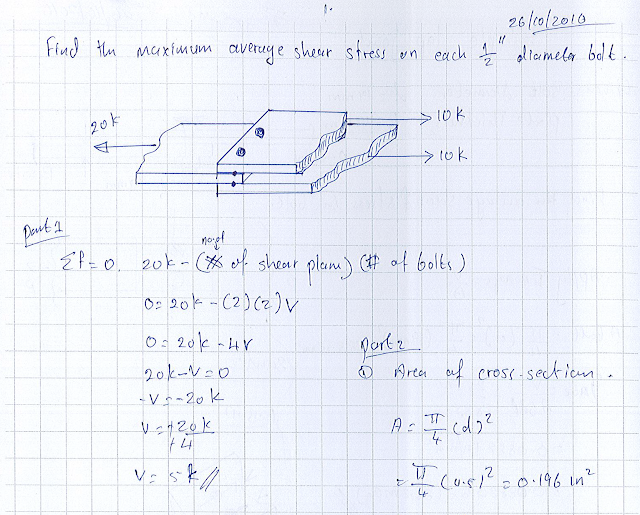 1.
26/10/2010
Find the maximum average shear stress on each 1/2" diameter bolt.
20k
10k
10k
Part 1
ΣF=0. 20k - (# of shear plane) (# of bolts)
no. of
0= 20k - (2)(2)V
0= 20k - 4V
20k-V=0
-V=-20k
V=+20k
+4
V= 5k //
Part 2
① Area of cross-section.
A = π/4 (d)²
= π/4 (0.5)² = 0.196 in²